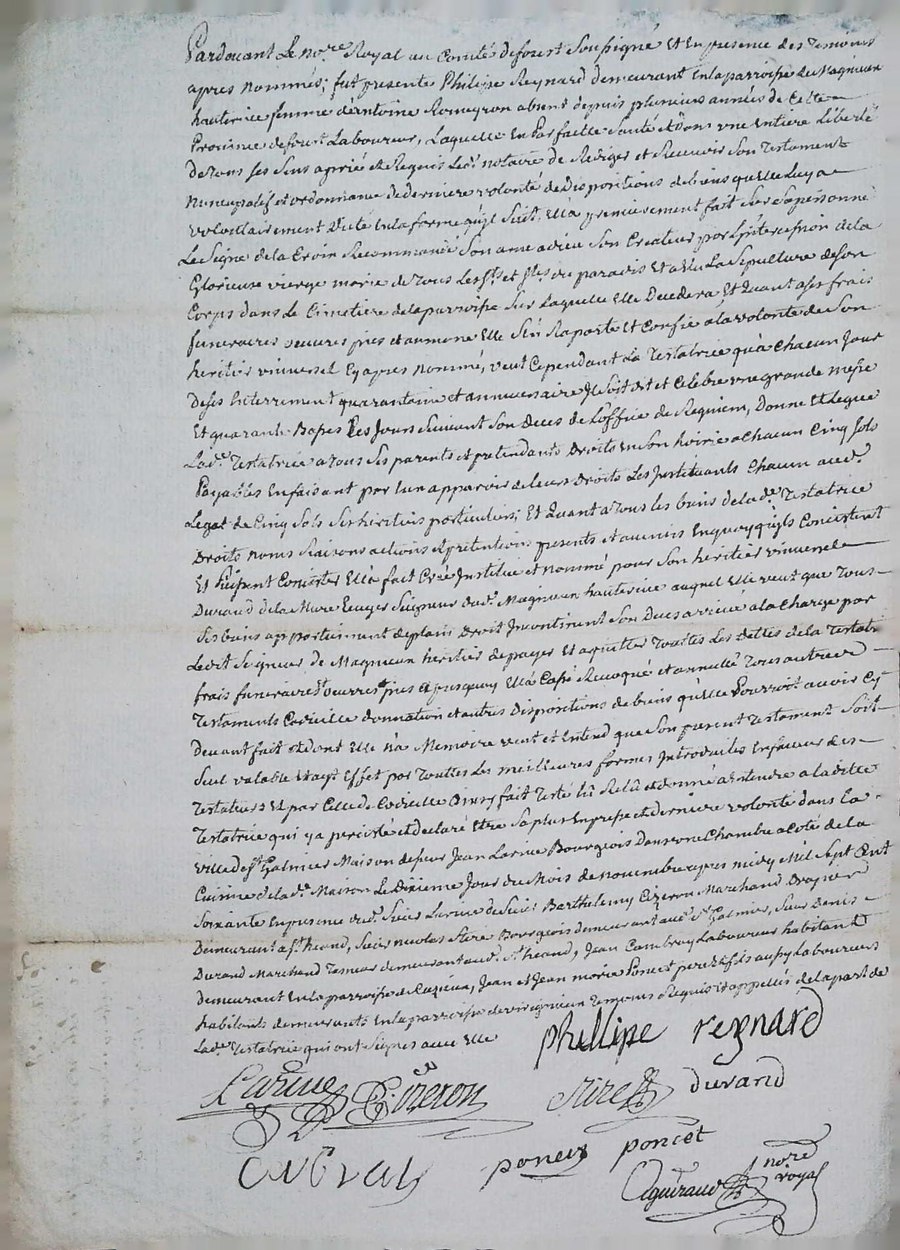 Pardevant Le no.re Royal au Comté deforest Soussigné Et En presence des Temoins
apres nommés; fut presente Philipe Reynard demeurant En la parroisse de Magnieux
hauterive femme d'antoine Romeyron absent depuis plusieurs années de Cette
Province deforest Laboureur, Laquelle En parfaitte Santé et Dans une Entiere Liberté
de Tous ses Sens aprié et Requis Led. notaire de Rediger et Recevoir Son Testament
nuncupatif et ordonnance de derniere volonté de dispositions de biens qu'elle luy a
volontairement Dicté En la forme qu'il Suit. Ella premierement fait Sur Sa personne
Le Signe de la Croix Recommandé Son ame a dieu Son Createur par L'intercession de la
Glorieuse vierge marie de Tous Les Sts. et Stes. du paradis Et a Elu La Sepulture de Son
Corps dans Le Cimetiere de la parroisse Sur Laquelle Elle Decedera Et Quant a Ses frais
funeraires oeuvres pies et aumone Elle S'en Raporte Et Confie a la volonté de Son
heritier universel Cy apres nommé, veut Cependant La Testatrice qu'a Chacun Jour
de Ses Enterrement quarantaine et anniversaire Il Soit dit et Celebré une grande messe
Et quarante Basses Les Jours Suivant Son Deces de L'office de Requiem, Donne Et Legue
Lad.e Testatrice a Tous Ses parents et pretendants Droits En Son hoirie a Chacun Cinq Sols
Payables En faisant par Eux apparoir de leurs Droits Les Instituants Chacun aud.
Legat de Cinq Sols Ses heritiers particuliers; Et Quant a Tous les biens de lad.e Testatrice
Droits noms Raisons actions et pretentions presents et avenirs En quoy qu'ils Concistent
Et puissent Concister Ella fait Créé Institue et nommé pour Son heritier universel
Durand de la Mure Ecuyer Seigneur dud. Magnieux hauterive auquel Elle veut que Tous
Ses biens appartiennent de plain Droit Incontinent Son Deces arrivé a la Charge par
Ledit Seigneur de Magnieux heritier de payer Et aquitter Toutes Les Dettes de la Testatr.
frais funeraires et oeuvres pies Et Ella Cassé Revoqué et annullé Tous autres
Testaments Codicille donnation et autres Dispositions de biens qu'elle Pourroit avoir Cy
Devant fait et dont Elle n'a Memoire veut et Entend que Son present Testament Soit
Seul valable Et ayt Effet par Touttes Les meilleures formes Introduites En faveur des
Testateurs Et par Celle de Codicille Ainsy fait Testé lû Relû et donné a Entendre a la ditte
Testatrice qui y a percisté et declaré Etre Sa plus Expresse et derniere volonté dans La
ville de St. Galmier Maison de Sieur Jean Larine Bourgeois Dans une Chambre a Coté de la
Cuisine de lad.e Maison Le Dixieme Jour du Mois de novembre apres midy Mil Sept Cent
Soixante En presence dud. Sieur Larine de Sieur Barthelemy Cizeron Marchand Drapier
Demeurant a St. heand, Sieur nicolas Stire Bourgeois demeurant aud. St. Galmier, Sieur Denis
Durand Marchand Tanneur demeurant aud. St. heand, Jean Laboureur habitant
demeurant En la parroisse de Cuzieu, Jean et Jean marie Poncet pere et fils aussy Laboureurs
habitants demeurants En la parroisse de virignieux Temoins Requis Et appellés de la part de
Lad.e Testatrice qui ont Signés avec Elle
phillipe reynard
Larine Cizeron Stire durand
poncet poncet
Aguiraud nore
royal